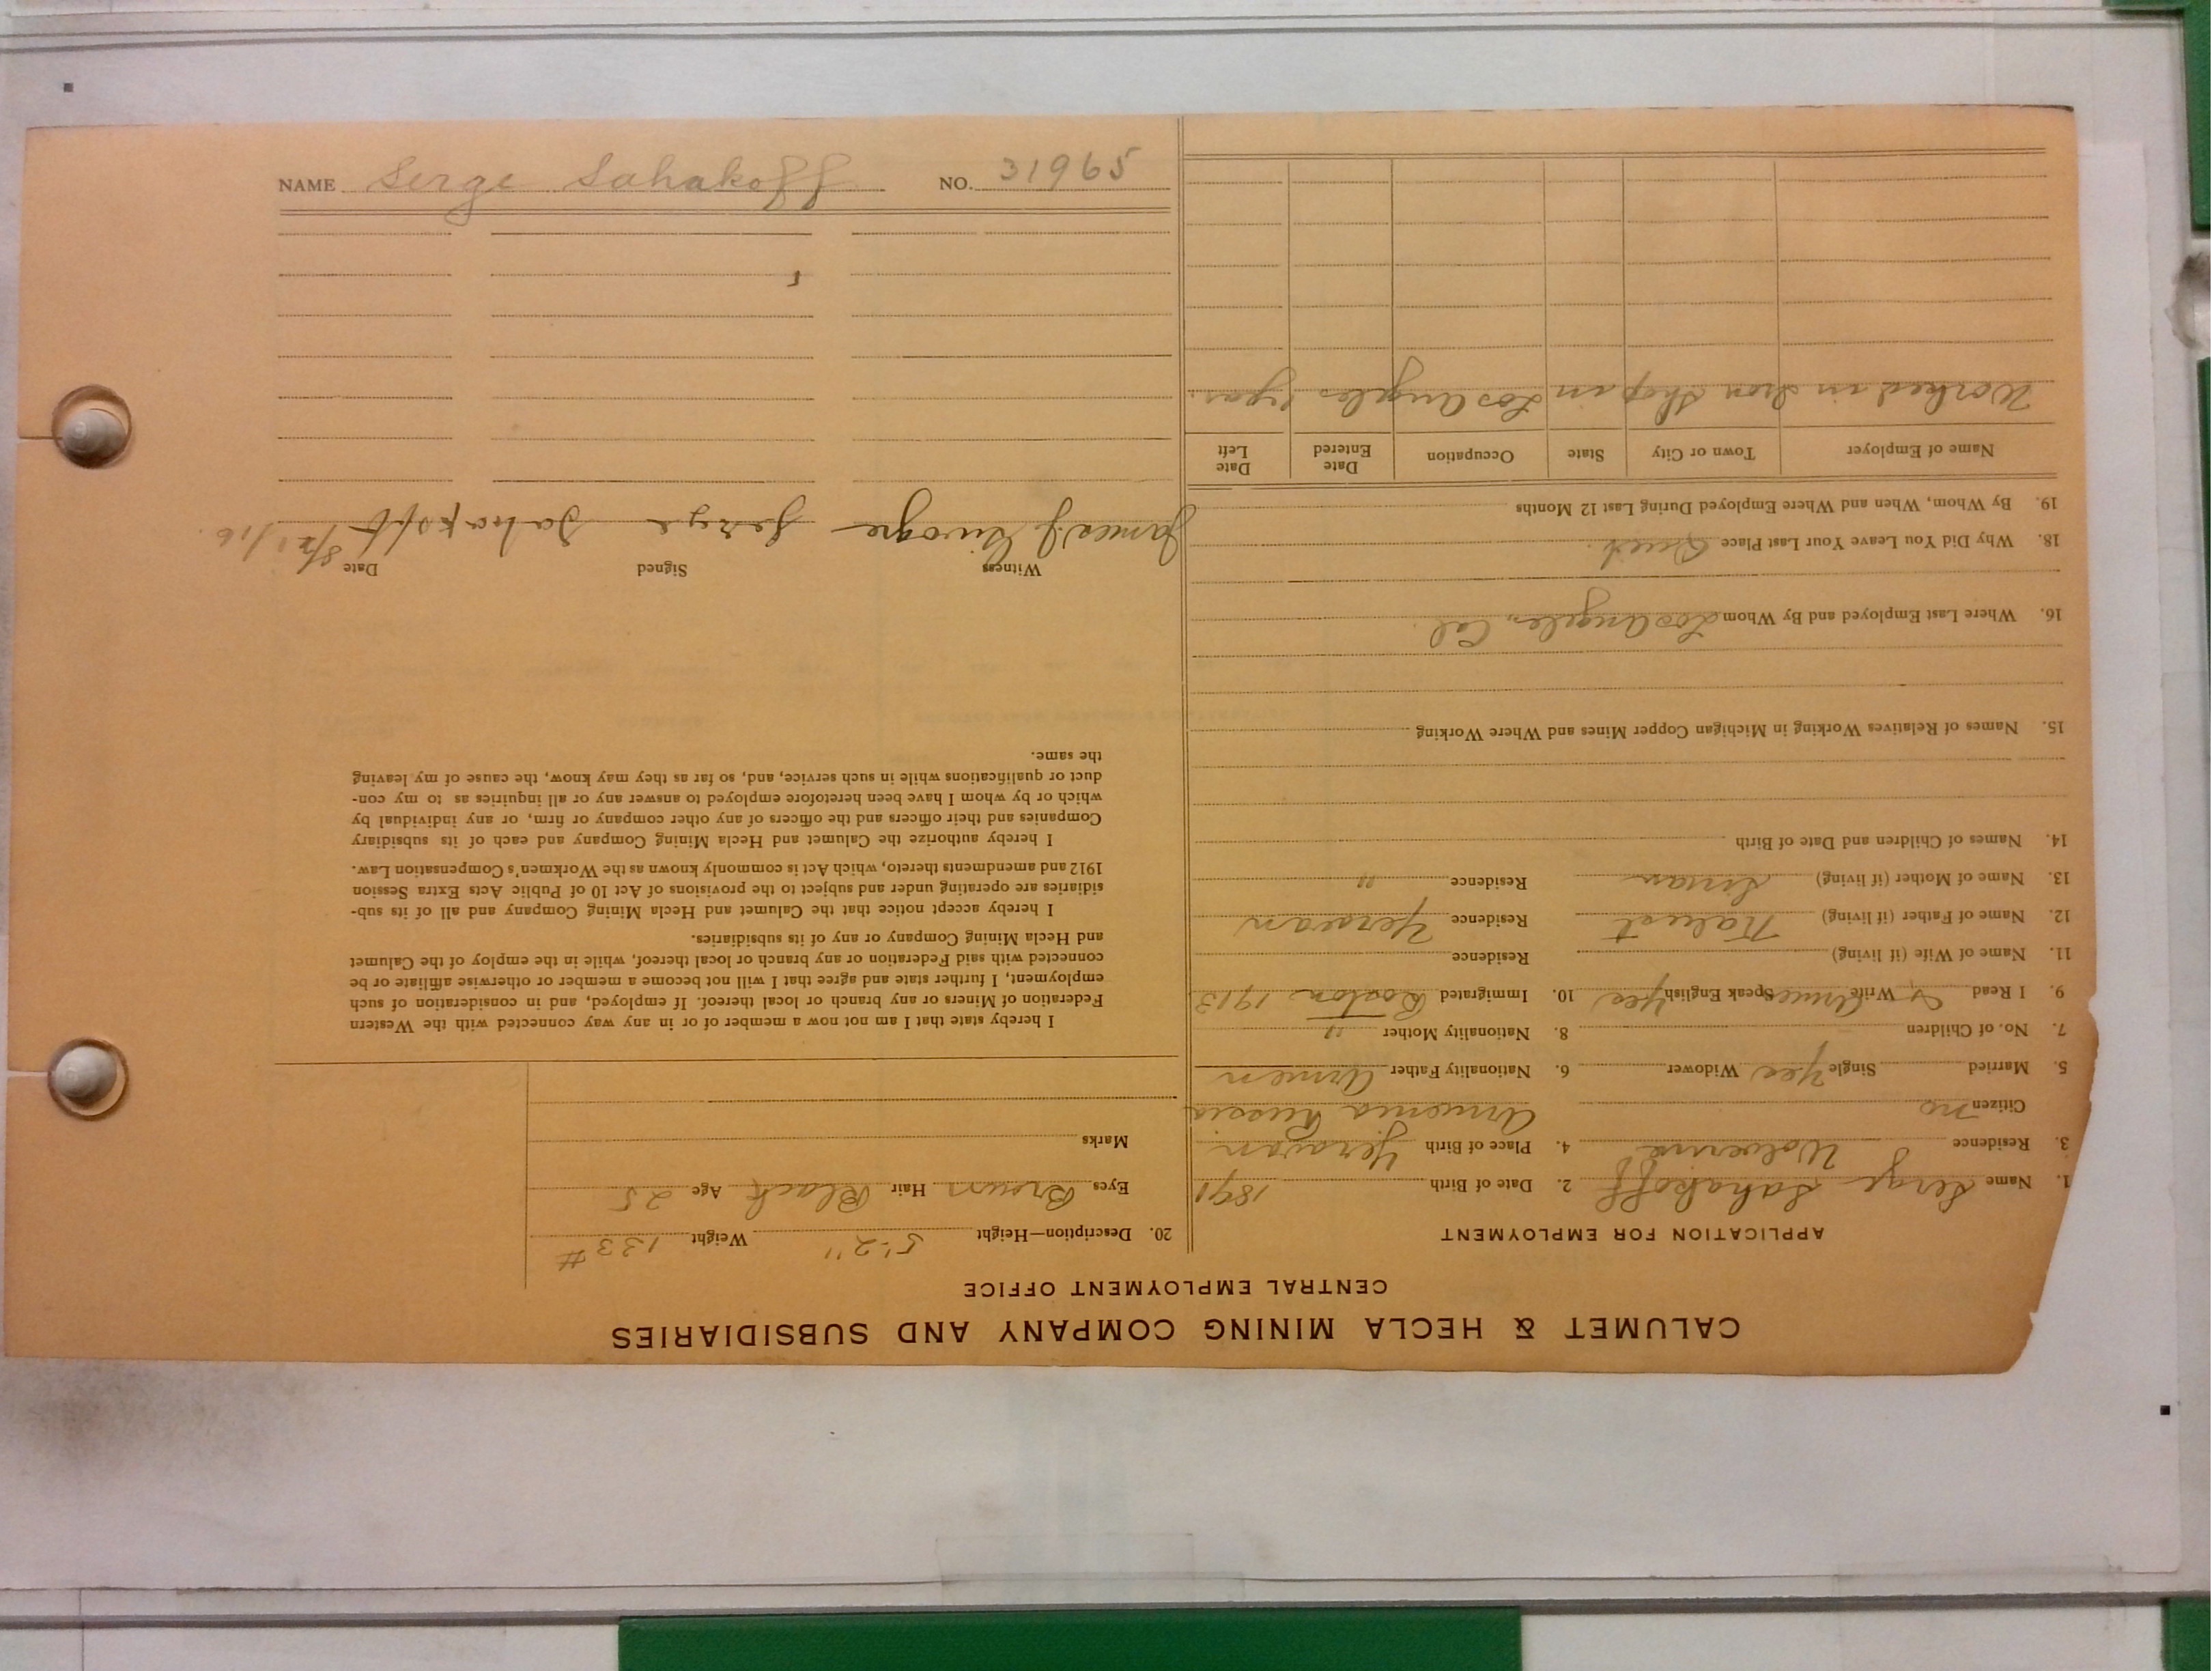 NAME Serge Sahakoff NO. 31965
CALUMET & HECLA MINING COMPANY AND SUBSIDIARIES
CENTRAL EMPLOYMENT OFFICE
APPLICATION FOR EMPLOYMENT
1. Name Serge Sahakoff 2. Date of Birth 1891
3. Residence Wolverine 4. Place of Birth Yeravan
Citizen no Armenia Russia
5. Married Single Yes Widower 6. Nationality Father Armen
7. No. of Children 8. Nationality Mother "
9. I Read Write Speak English Yes 10. Immigrated Boston 1913
11. Name of Wife (if living) Residence
12. Name of Father (if living) Kalust Residence Yeravan
13. Name of Mother (if living) Residence "
14. Names of Children and Date of Birth
15. Names of Relatives Working in Michigan Copper Mines and Where Working
16. Where Last Employed and By Whom Los Angeles, Cal.
18. Why Did You Leave Your Last Place Quit.
19. By Whom, When and Where Employed During Last 12 Months
Name of Employer Town or City State Occupation Date Entered Date Left
Worked in Iron Shop in Los Angeles 1 year.
20. Description—Height 5'-2" Weight 133 #
Eyes Brown Hair Black Age 25
Marks
I hereby state that I am not now a member of or in any way connected with the Western
Federation of Miners or any branch or local thereof. If employed, and in consideration of such
employment, I further state and agree that I will not become a member or otherwise affiliate or be
connected with said Federation or any branch or local thereof, while in the employ of the Calumet
and Hecla Mining Company or any of its subsidiaries.
I hereby accept notice that the Calumet and Hecla Mining Company and all of its sub-
sidiaries are operating under and subject to the provisions of Act 10 of Public Acts Extra Session
1912 and amendments thereto, which Act is commonly known as the Workmen's Compensation Law.
I hereby authorize the Calumet and Hecla Mining Company and each of its subsidiary
Companies and their officers and the officers of any other company or firm, or any individual by
which or by whom I have been heretofore employed to answer any or all inquiries as to my con-
duct or qualifications while in such service, and, so far as they may know, the cause of my leaving
the same.
Witness Signed Date
James J.